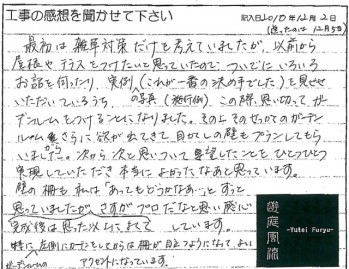 工事の感想を聞かせて下さい
記入日2010年12月2日
(送ったのは 12月5日)
最初は雑草対策だけを考えていましたが、以前から
屋根やテラスをつけたいと思っていたので、ついでにいろいろ
お話を伺ったり、実例(これが一番の決め手でした)を見せ
いただいているうち、の写真(施行例)この際、思い切ってガー
デンルームをつけることになりました。その上そのせっかくのガーデン
ルーム さらに欲が出てきて目かくしの壁もプランしてもら
いましたから。次から次と思いついて要望したことをひとつひとつ
実現していただき本当によかったなあと思っています。
壁の柵も私は「あってもどうかなあ…」とずっと
思っていましたが、さすがプロだなと思い感心
完成後は思った以上に、とても しています。
特に、左側にカーテンとしてからは柵が目立つようになって、より
アクセントになっています。
遊庭風流
-Yutei Furyu-